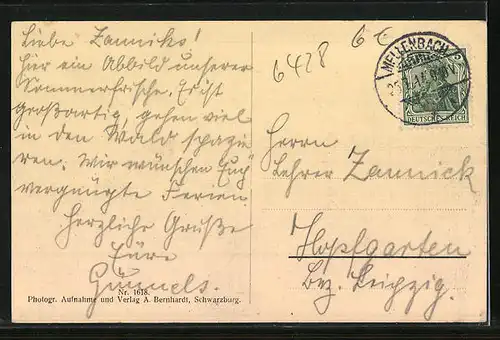 Liebe Zannicks!
hier ein Abbild unserer
Sommerfrische. Es ist
Großartig, gehen viel
in den Wald spazie
ren. Wir wünschen Euch
vergnügte Ferien.
Herzliche Grüße
Eure
Gümmels.
Nr. 1618.
Photogr. Aufnahme und Verlag A. Bernhardt, Schwarzburg.
6428
MELLENBACH
5
DEUTSCHES REICH
Herrn
Lehrer Zannick
Hopfgarten
Bez. Leipzig.